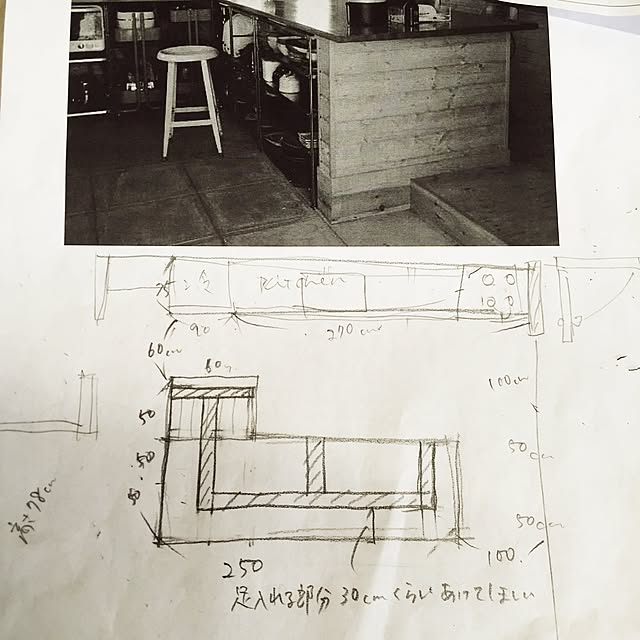 冷 Kitchen
90 270cm
60cm
60cm
100cm
50
50
50cm
50
50cm
高さ78cm
250
100.
足入れる部分 30cmくらいあけてほしい